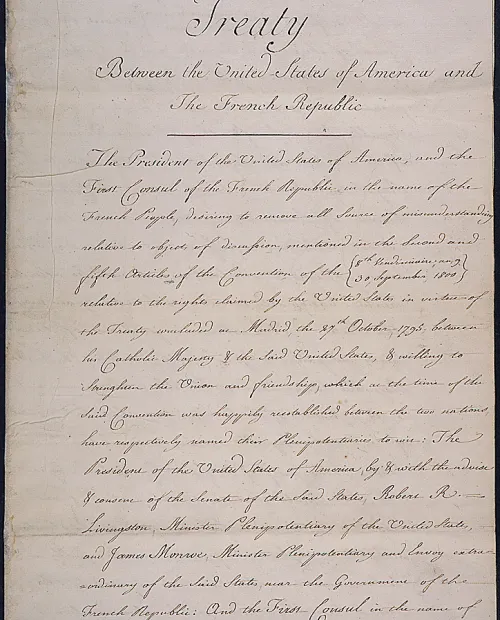 Treaty
Between the United States of America and
The French Republic
The President of the United States of America, and the
First Consul of the French Republic, in the name of the
French People, desiring to remove all Source of misunderstanding
relative to objects of discussion, mentioned in the Second and
fifth Articles of the Convention of the {8th Vendémiaire, an 9
30, September, 1800}
relative to the rights claimed by the United States in virtue of
the Treaty concluded at Madrid, the 27th October, 1795, between
his Catholic Majesty & the Said United States, & willing to
Strengthen the Union and friendship, which at the time of the
Said Convention was happily reestablished between the two nations,
have respectively named their Plenipotentiaries to wit: The
President of the United States of America, by & with the advise
& consent of the Senate of the Said States, Robert R.
Livingston, Minister Plenipotentiary of the United States,
and James Monroe, Minister Plenipotentiary and Envoy extra-
-ordinary of the Said States, near the Government of the
French Republic: And the First Consul in the name of